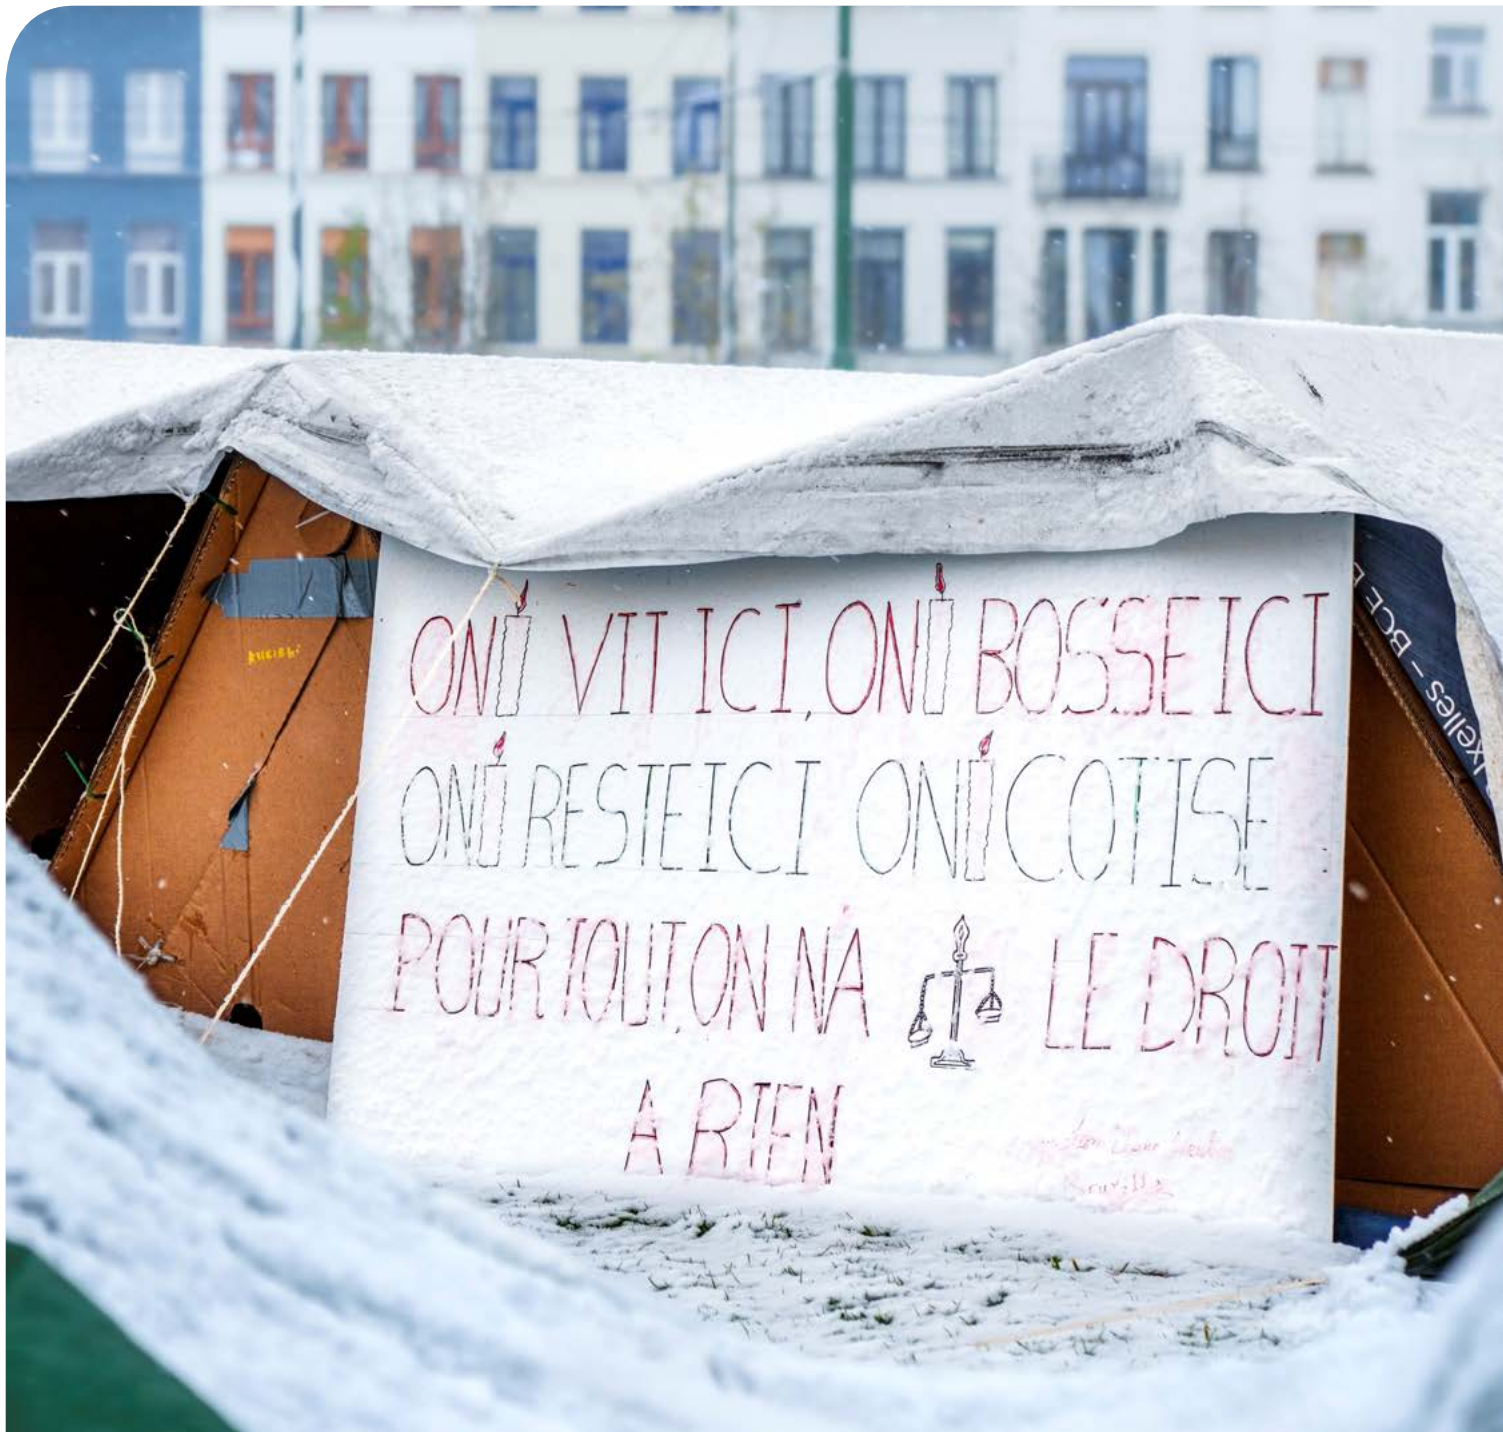 ON VIT ICI, ON BOSSE ICI
ON RESTE ICI ON COTISE
POUR TOUT, ON N'A LE DROIT
A RIEN
Bruxelles
xelles – BCE